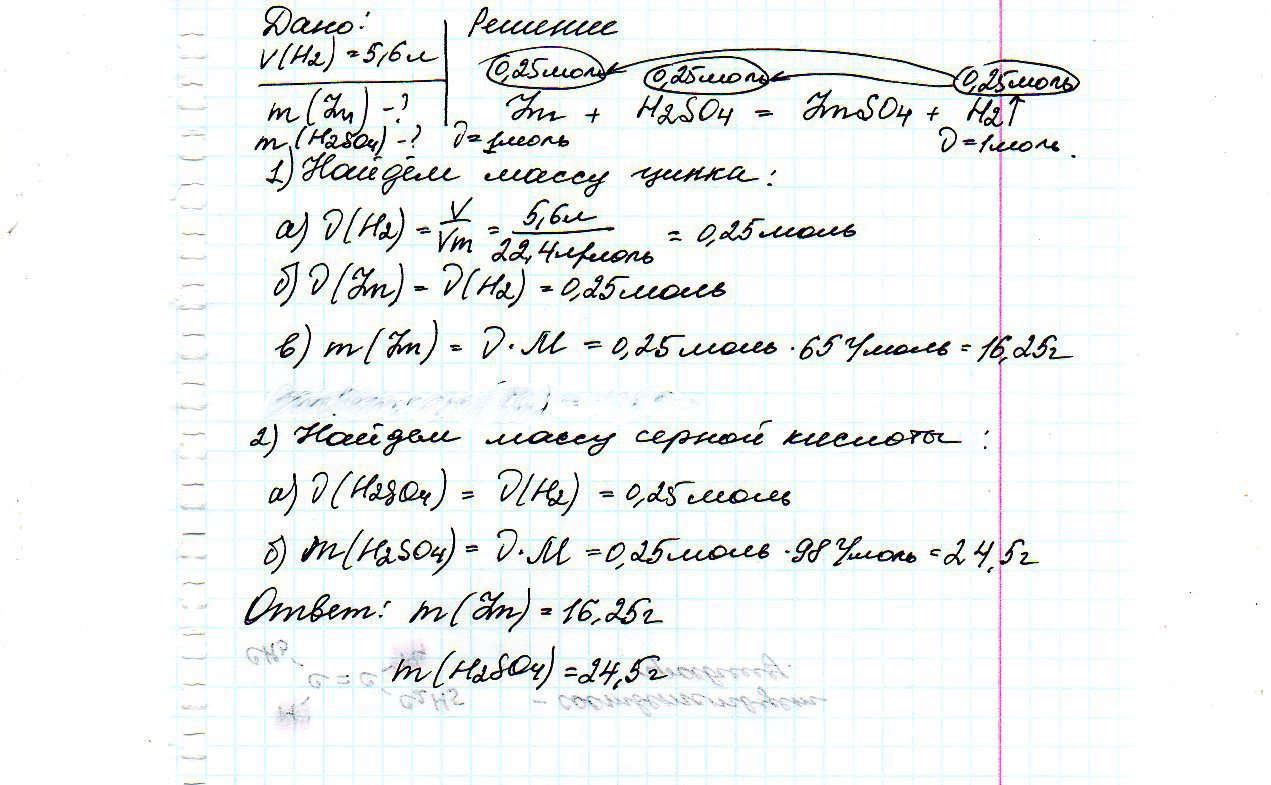 Дано: Решение
V(H2) = 5,6л 0,25моль 0,25моль 0,25моль
m(Zn) -? Zn + H2SO4 = ZnSO4 + H2↑
m(H2SO4) -? ν=1моль ν=1моль.
1) Найдём массу цинка:
а) ν(H2) = V/Vm = 5,6л/22,4л/моль = 0,25моль
б) ν(Zn) = ν(H2) = 0,25моль
в) m(Zn) = ν·M = 0,25моль · 65г/моль = 16,25г
2) Найдем массу серной кислоты:
а) ν(H2SO4) = ν(H2) = 0,25моль
б) m(H2SO4) = ν·M = 0,25моль · 98г/моль = 24,5г
Ответ: m(Zn) = 16,25г
m(H2SO4) = 24,5г